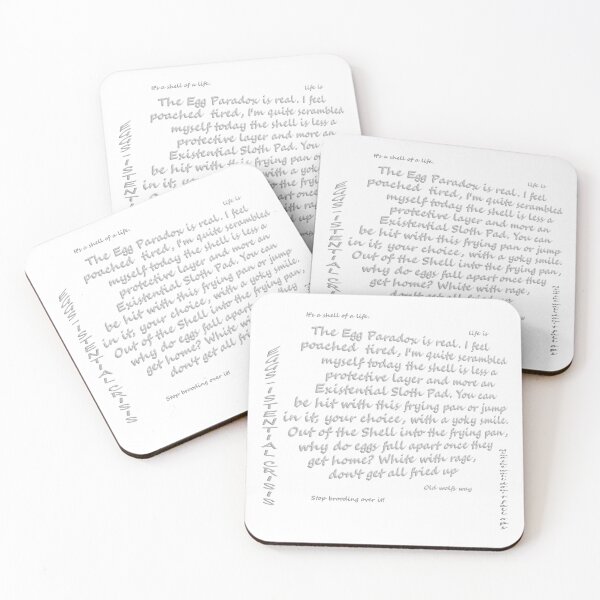 It's a shell of a life.
life is
The Egg Paradox is real. I feel
poached tired, I'm quite scrambled
myself today the shell is less a
protective layer and more an
Existential Sloth Pad. You can
be hit with this frying pan or
It's a shell of a life.
life is
The Egg Paradox is real. I feel
poached tired, I'm quite scrambled
myself today the shell is less a
protective layer and more an
Existential Sloth Pad. You can
be hit with this frying pan or jump
in it; your choice, with a yoky smile.
Out of the Shell into the frying pan,
why do eggs fall apart once they
get home? White with rage,
It's a shell of a life.
life is
The Egg Paradox is real. I feel
poached tired, I'm quite scrambled
myself today the shell is less a
protective layer and more an
Existential Sloth Pad. You can
be hit with this frying pan or jump
in it; your choice, with a yoky
Out of the Shell into the
why do eggs fall apart
get home? White
don't get all
Stop brooding over it!
EGGS-ISTENTIALCRISIS
It's a shell of a life.
life is
The Egg Paradox is real. I feel
poached tired, I'm quite scrambled
myself today the shell is less a
protective layer and more an
Existential Sloth Pad. You can
be hit with this frying pan or jump
in it; your choice, with a yoky smile.
Out of the Shell into the frying pan,
why do eggs fall apart once they
get home? White with rage,
don't get all fried up
Old wolfs way
Stop brooding over it!
EGGS-ISTENTIALCRISIS